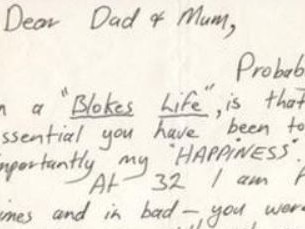 Dear Dad & Mum,
Probab
n a "Blokes Life", is that
ssential you have been to
mportantly my "HAPPINESS".
At 32 I am
imes and in bad - you wer